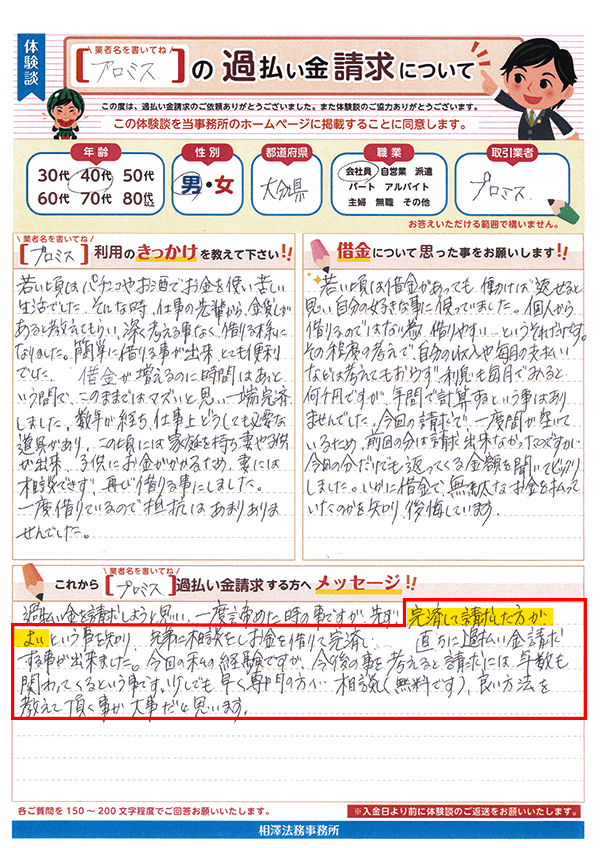 体験談
業者名を書いてね
[プロミス]の過払い金請求について
この度は、過払い金請求のご依頼ありがとうございました。また体験談のご協力ありがとうございます。
この体験談を当事務所のホームページに掲載することに同意します。
年齢
30代 40代 50代
60代 70代 80代
性別
男・女
都道府県
大分県
職業
会社員 自営業 派遣
パート アルバイト
主婦 無職 その他
取引業者
プロミス
お答えいただける範囲で構いません。
業者名を書いてね
[プロミス]利用のきっかけを教えて下さい!!
若い頃はパチンコやお酒でお金を使い苦しい
生活でした。そんな時、仕事の先輩から、金貸しが
あると教えてもらい、深く考える事なく、借りる様に
なりました。簡単に借りる事が出来、とても便利
でした。 借金が増えるのに時間はあっと
いう間で、このままではマズいと思い一端完済
しました。数年が経ち、仕事上どうしても必要な
道具があり、この頃には家庭を持ち妻や子供
が出来、子供にお金がかかるため、妻には
相談できず、再び借りる事にしました。
一度借りているので抵抗はあまりありま
せんでした。
借金について思った事をお願いします!!
若い頃は借金があっても働けば返せると
思い自分の好きな事に使っていました。個人から
借りるのではない為、借りやすい…というそれだけです。
その程度の考えで自分の収入や毎月の支払い
などは考えてもおらず、利息も毎月でみると
何千円ですが、年間で計算するという事はあり
ませんでした。今回の請求で、一度間が空いて
いるため、前回の分は請求出来なかったのですが
今回の分だけでも返ってくる金額を聞いてビックリ
しました。いかに借金で、無駄なお金を払って
いたのかを知り、後悔しています。
業者名を書いてね
これから[プロミス]過払い金請求する方へメッセージ!!
過払い金を請求しようと思い、一度諦めた時の事ですが、先ず 完済して請求した方が
よいという事を知り、兄弟に相談をしお金を借りて完済し 直ちに過払い金請求
する事が出来ました。今回の私の経験ですが、今後の事を考えると請求には年数も
関わってくるという事です。少しでも早く専門の方へ…相談(無料です)、良い方法を
教えて頂く事が大事だと思います。
各ご質問を150~200文字程度でご回答お願いいたします。
※入金日より前に体験談のご返送をお願いいたします。
相澤法務事務所